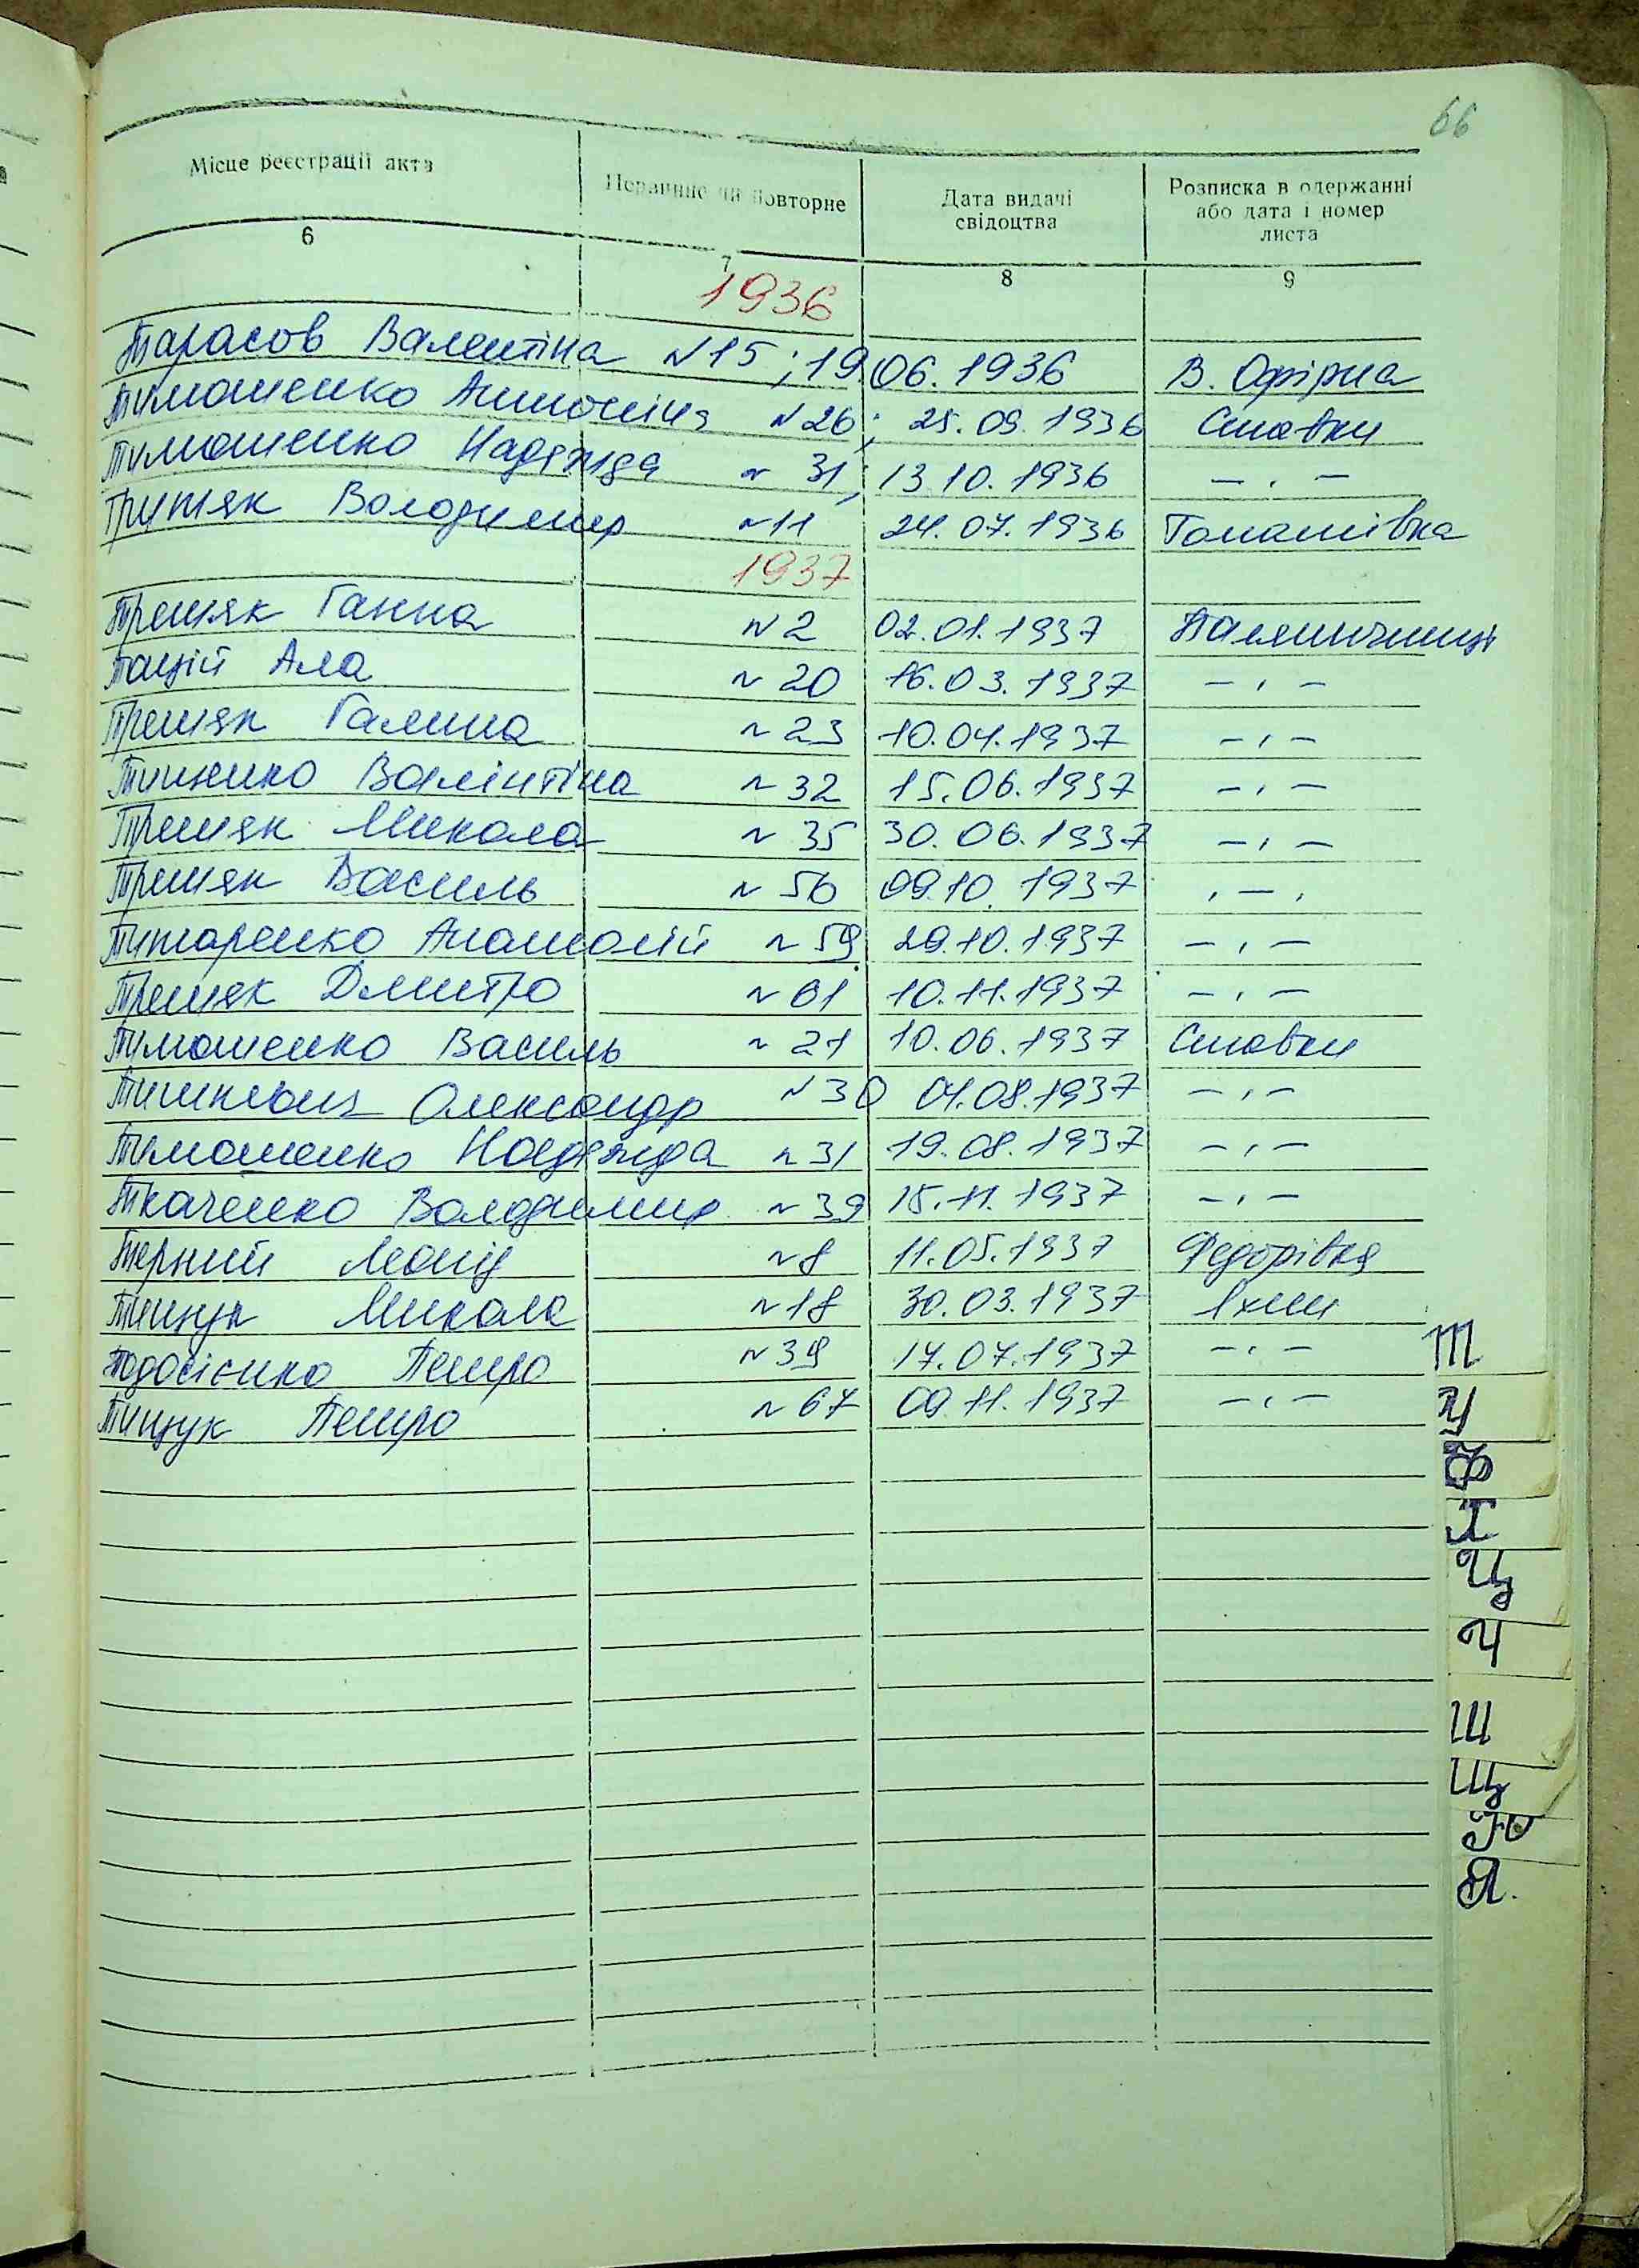 66
Місце реєстрації акта
Первинне чи повторне
Дата видачі
свідоцтва
Розписка в одержанні
або дата і номер
листа
6
7
8
9
1936
Тарасов Валентіна N15; 19.06.1936 В. Офірна
Тимошенко Антоніна N26; 25.09.1936 Ставки
Тимошенко Надежда N 31; 13.10.1936 – . –
Притяк Володимир N11 24.07.1936 Томашівка
1937
Третяк Ганна N2 02.01.1937 Паляничинці
Тацій Ала N 20 16.03.1937 – , –
Третяк Галина N 23 10.04.1937 – , –
Тищенко Валінтіна N 32 15.06.1937 – , –
Третяк Микола N 35 30.06.1937 – , –
Третяк Василь N 56 09.10.1937 , – ,
Титаренко Анатолій N 59 29.10.1937 – , –
Третяк Дмитро N 61 10.11.1937 – , –
Тимошенко Василь N 21 10.06.1937 Ставки
Олександр N30 04.08.1937 – , –
Тимошенко Надежда N31 19.08.1937 – , –
Ткаченко Володимир N 39 15.11.1937 – , –
Терний Леонід N8 11.05.1937 Федорівка
Тищук Микола N18 30.03.1937
Тодосієнко Петро N39 17.07.1937 – , –
Тищук Петро N 67 09.11.1937 – , –
Т
У
Ф
Х
Ц
Ч
Ш
Щ
Ю
Я.